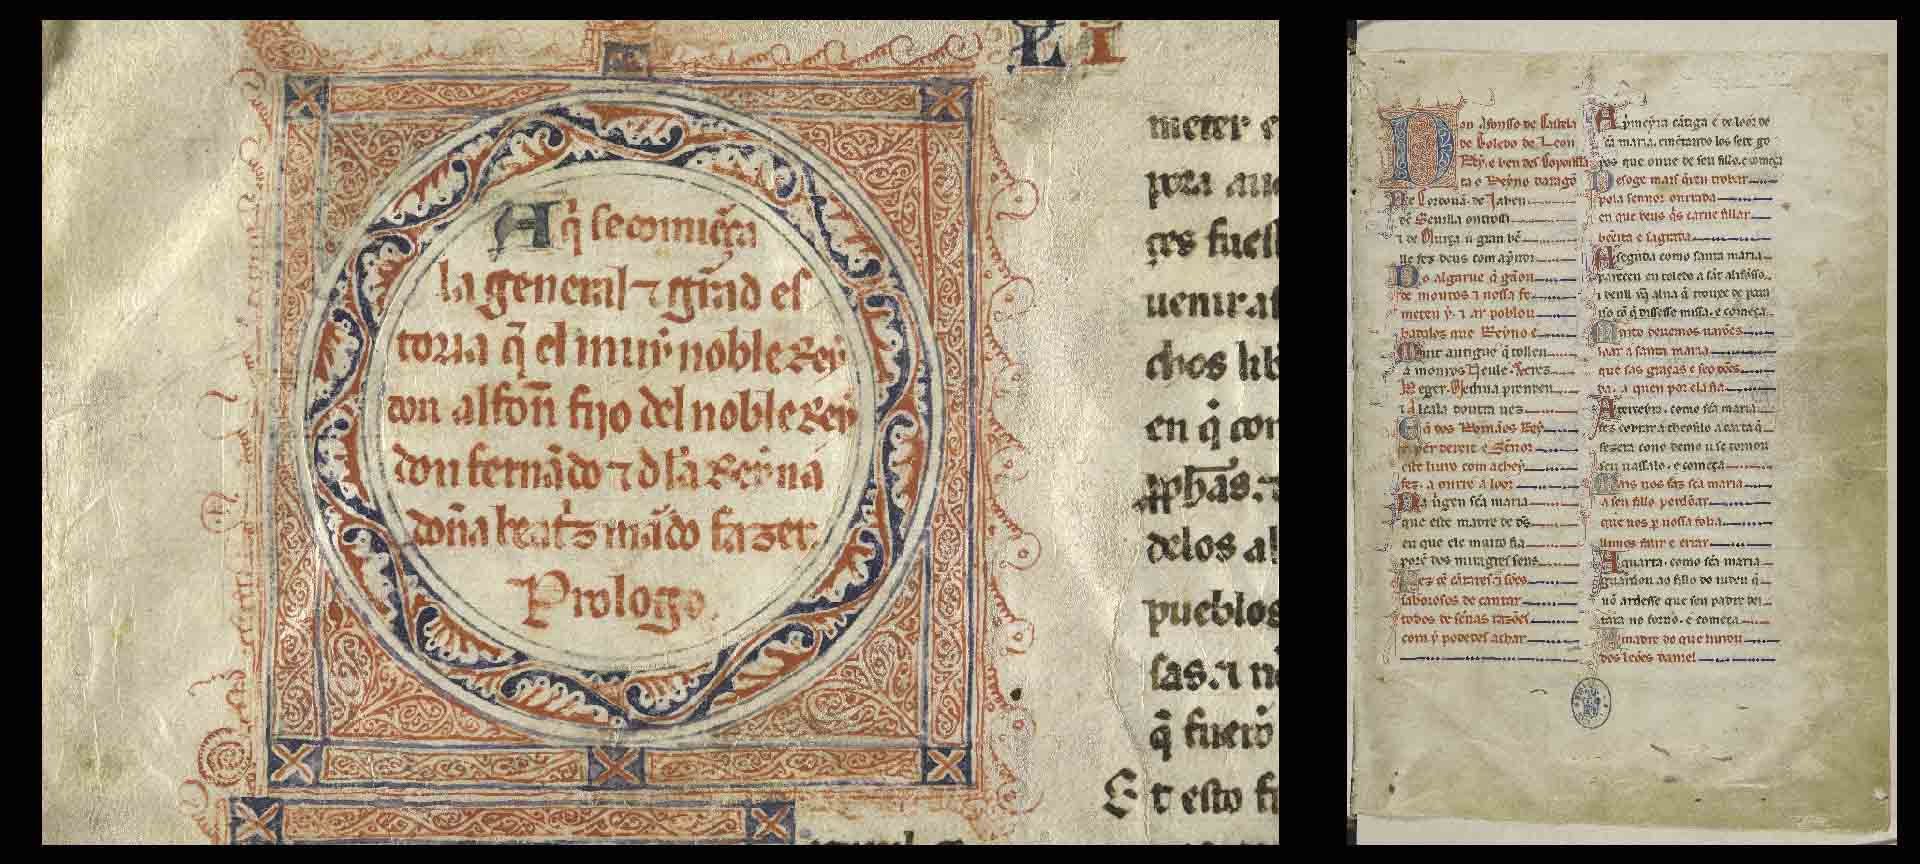 Aq̃ se comiẽça
la general ⁊ grãd es
toria q̃ el muy noble Rey
don alfon̄ fijo del noble Rey
don fernãdo ⁊ d̃la Reyna
doña beatz mãdo fazer.
Prologo.
meter e
pora
ces fues
uenir
chos lib
en q̃ con
pphãs. ⁊
delos al
pueblos
sas. ⁊ n
q̃ fuerõ
Et esto f
Don Afonsso de Castela
de Toledo de Leon
Rey e ben des Compostela
ta o Reyno daragõ
De Cordoua de Jahen
de Seuilla outrossi
⁊ de Murça u gran bẽ
lle fez deus com aprẽdi
Do algarue q̃ gãou
de mouros ⁊ nossa fe
meteu y. ⁊ ar poblou
badallos que Reyno e
Muit antigue q̃ tolleu
a mouros Neule. Xerez
Beger. Medina prendeu
⁊ Alcala doutra uez
Eq̃ dos Romãos Rey
e per dereit e Sẽnor
este liuro com achey
fez. a onrr e a loor
Da uirgen scã maria
que este madre de d̃s
en que ele muito fia
porẽ dos miragres seus
Fez cẽ cãtares ⁊ sões
saborosos de cantar
todos de sennas razões
com y podedes achar
A p̃meyra cãtiga e de loor de
scã maria. emẽtando los sete go
yos que ouue de seu fillo. e começa
Desoge mais q̃reu trobar
pola sennor onrrada
en que deus q̃s carne fillar
bẽeita e sagrada
A segũda como santa maria
pareceu en toledo a sãt alifõsso
⁊ deull. ũa alua q̃ trouxe de para
yso cõ q̃ dissesse missa. e começa
Muito deuemos uarões
loar a santa maria
que sas graças e seo dões
da. a quen por ela fia
A terceyra. como scã maria
fez cobrar a theophilo a carta q̃
fezera cono demo u se tornou
seu uassalo. e começa
Mais nos faz scã maria
a seu fillo perdõar
que nos p̲ nossa folia
llimos falir e errar
A quarta. como scã maria
guardou ao fillo do iudeu q̃
nõ ardesse que seu padre dei
tara no forno. e começa
A madre do que liurou
dos leões daniel